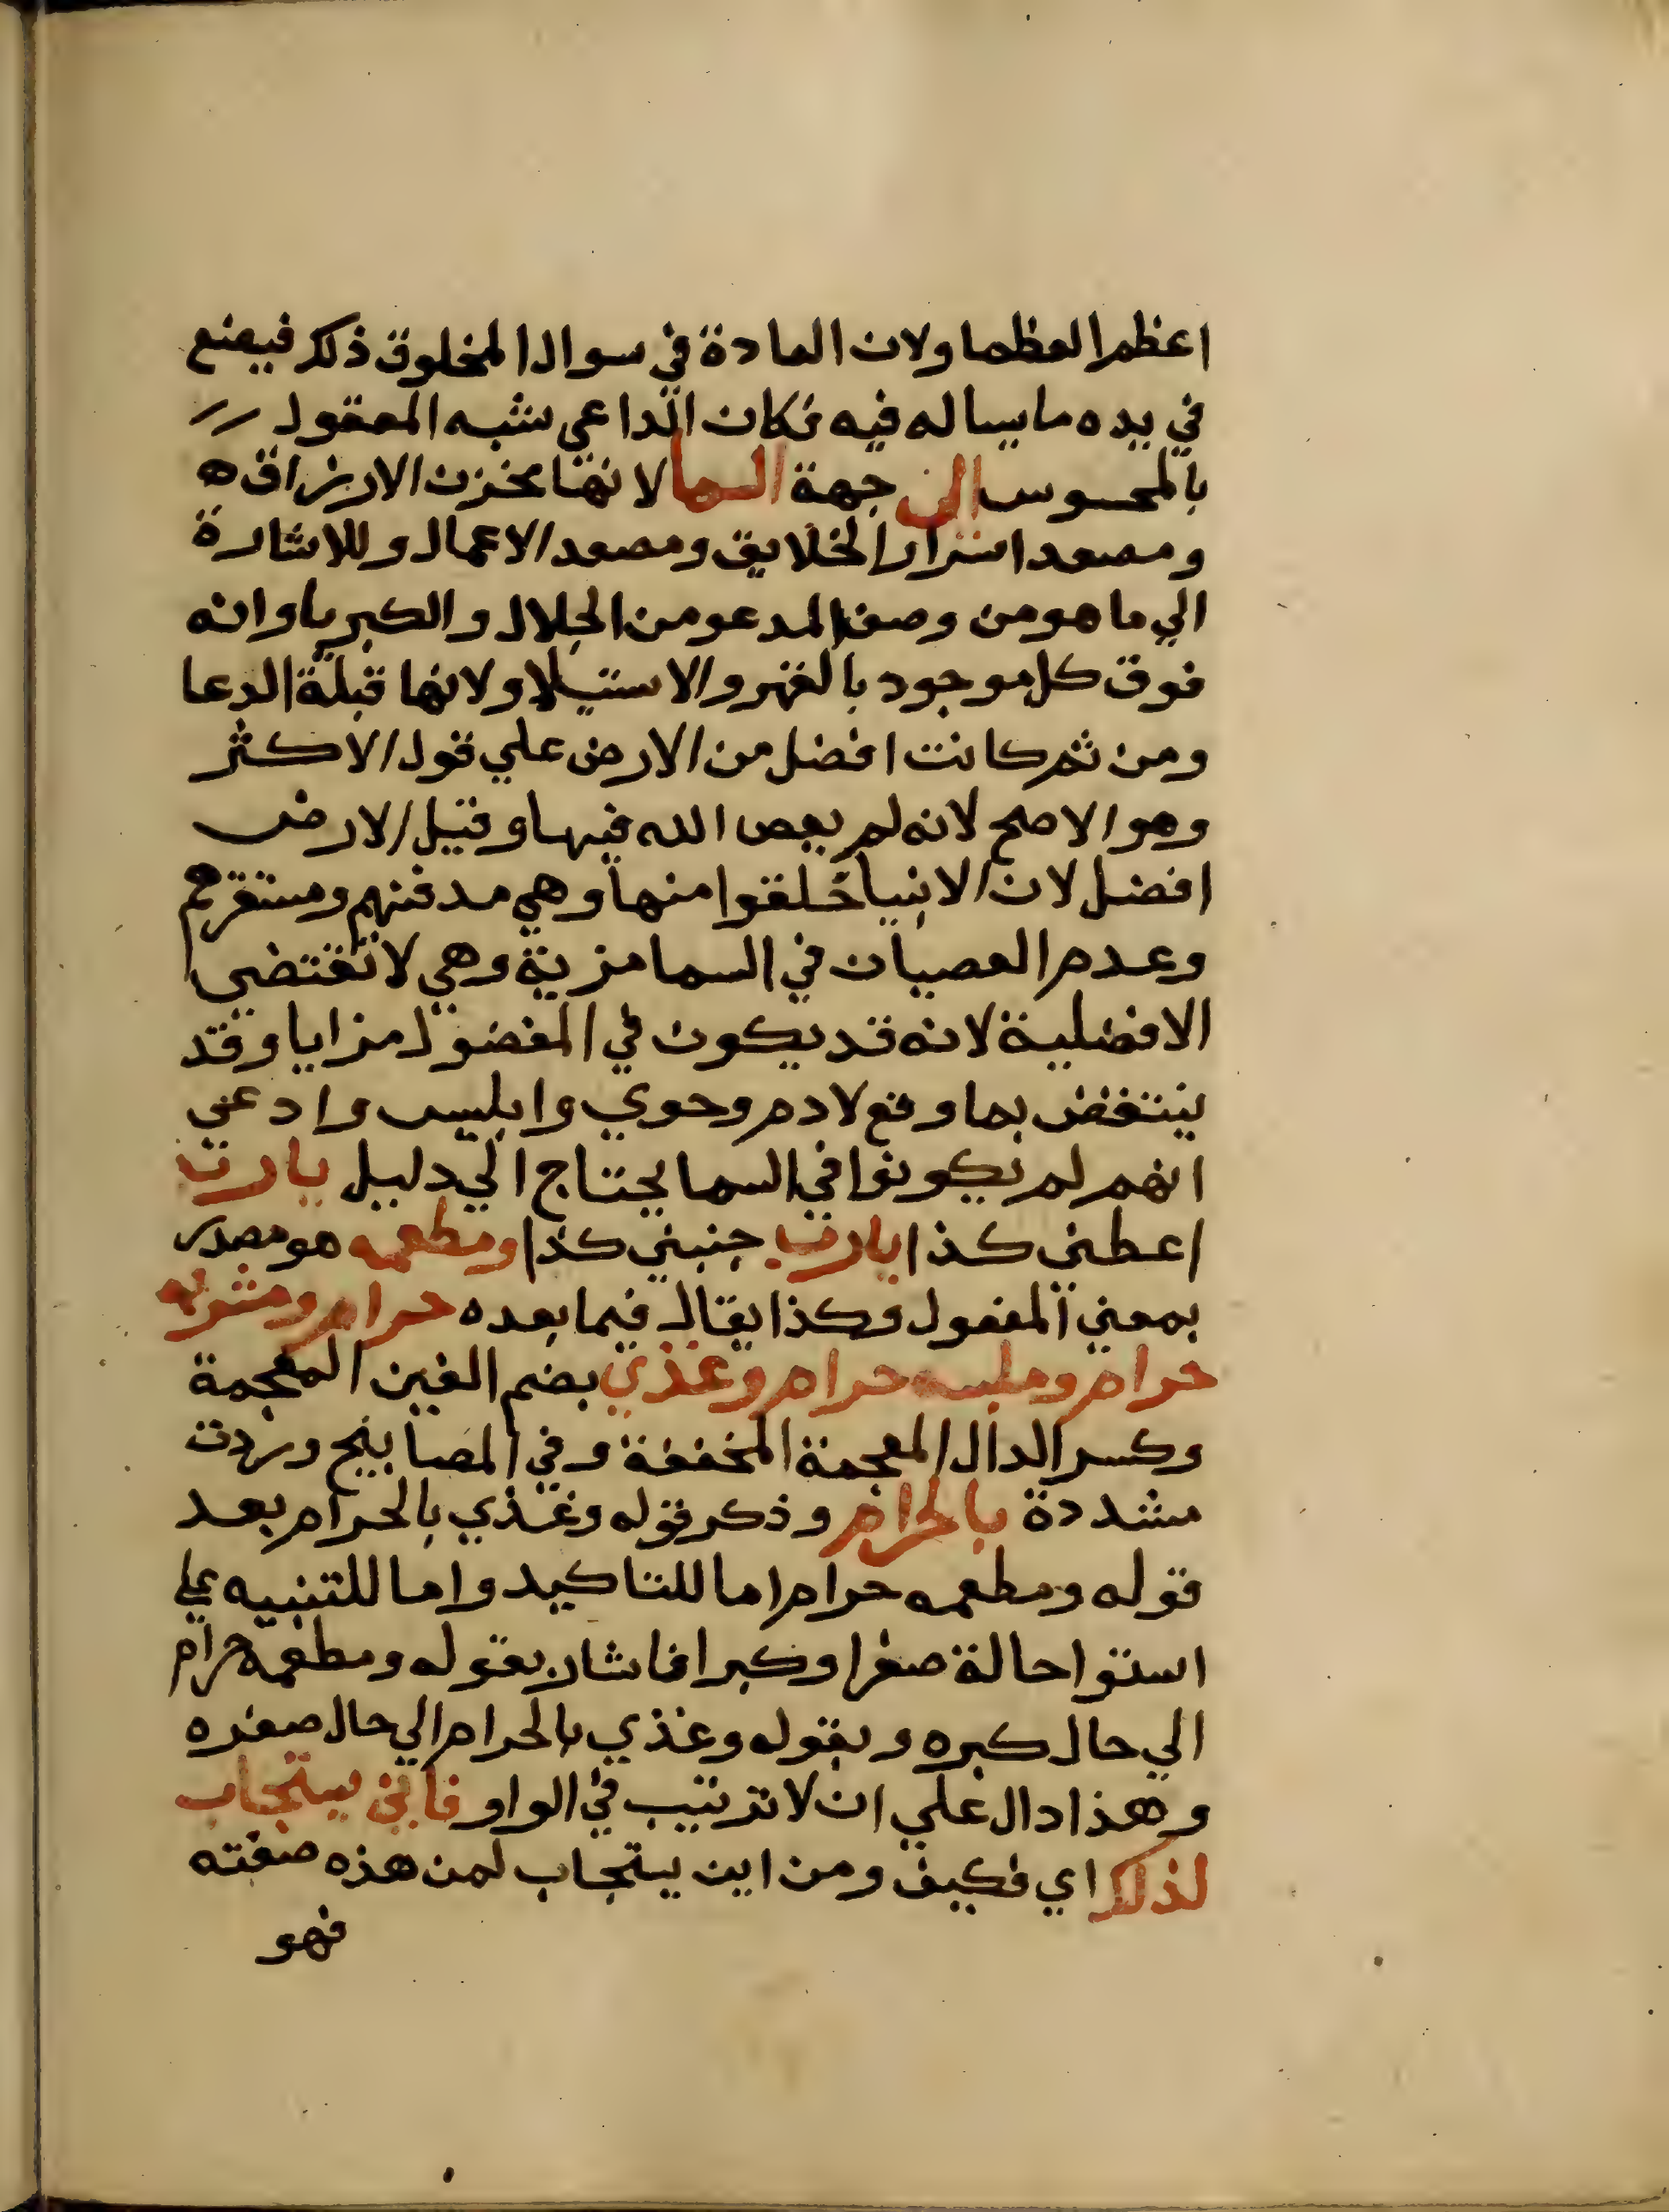 اعظم العظما ولان العادة في سوال المخلوق ذلك فيضع
في يده ما يساله فيه فكان الداعي شبه المعقول
بالمحسوس الى جهة السما لانها مخزن الارزاق
ومصعد اسرار الخلايق ومصعد الاعمال وللاشارة
الي ما هو من وصف المدعو من الجلال والكبريا وانه
فوق كل موجود بالقهر والاستيلا ولانها قبلة الدعا
ومن ثم كانت افضل من الارض علي قول الاكثر
وهو الاصح لانه لم يعص الله فيها وقيل الارض
افضل لان الانبيا خلقوا منها وهي مدفنهم ومستقرهم
وعدم العصيان في السما مزية وهي لا تقتضي
الافضلية لانه قد يكون في المفضول مزايا وقد
ينتقض بما وقع لادم وحوي وابليس وادعي
انهم لم يكونوا في السما يحتاج الي دليل يا رب
اعطني كذا يا رب جنبني كذا ومطعمه هو مصدر
بمعني المفعول وكذا يقال فيما بعده حرام ومشربه
حرام وملبسه حرام وغذي بضم الغين المعجمة
وكسر الدال المعجمة المخففة وفي المصابيح وردت
مشددة بالحرام وذكر قوله وغذي بالحرام بعد
قوله ومطعمه حرام اما للتاكيد واما للتنبيه علي
استوا حالة صغرا وكبرا فاشار بقوله ومطعمه حرام
الي حال كبره وبقوله وغذي بالحرام الي حال صغره
وهذا دال علي ان لا ترتيب في الواو فاني يستجاب
لذلك اي فكيف ومن اين يستجاب لمن هذه صفته
فهو